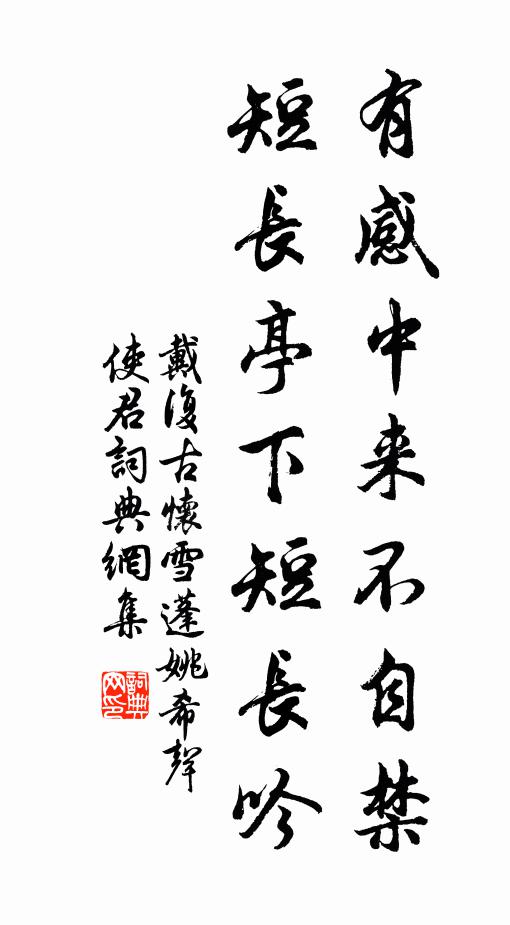 有感中来不自禁
短長亭下短長吟
戴復古懷雪蓬姚希聲
使君詞典網集
詞典网印